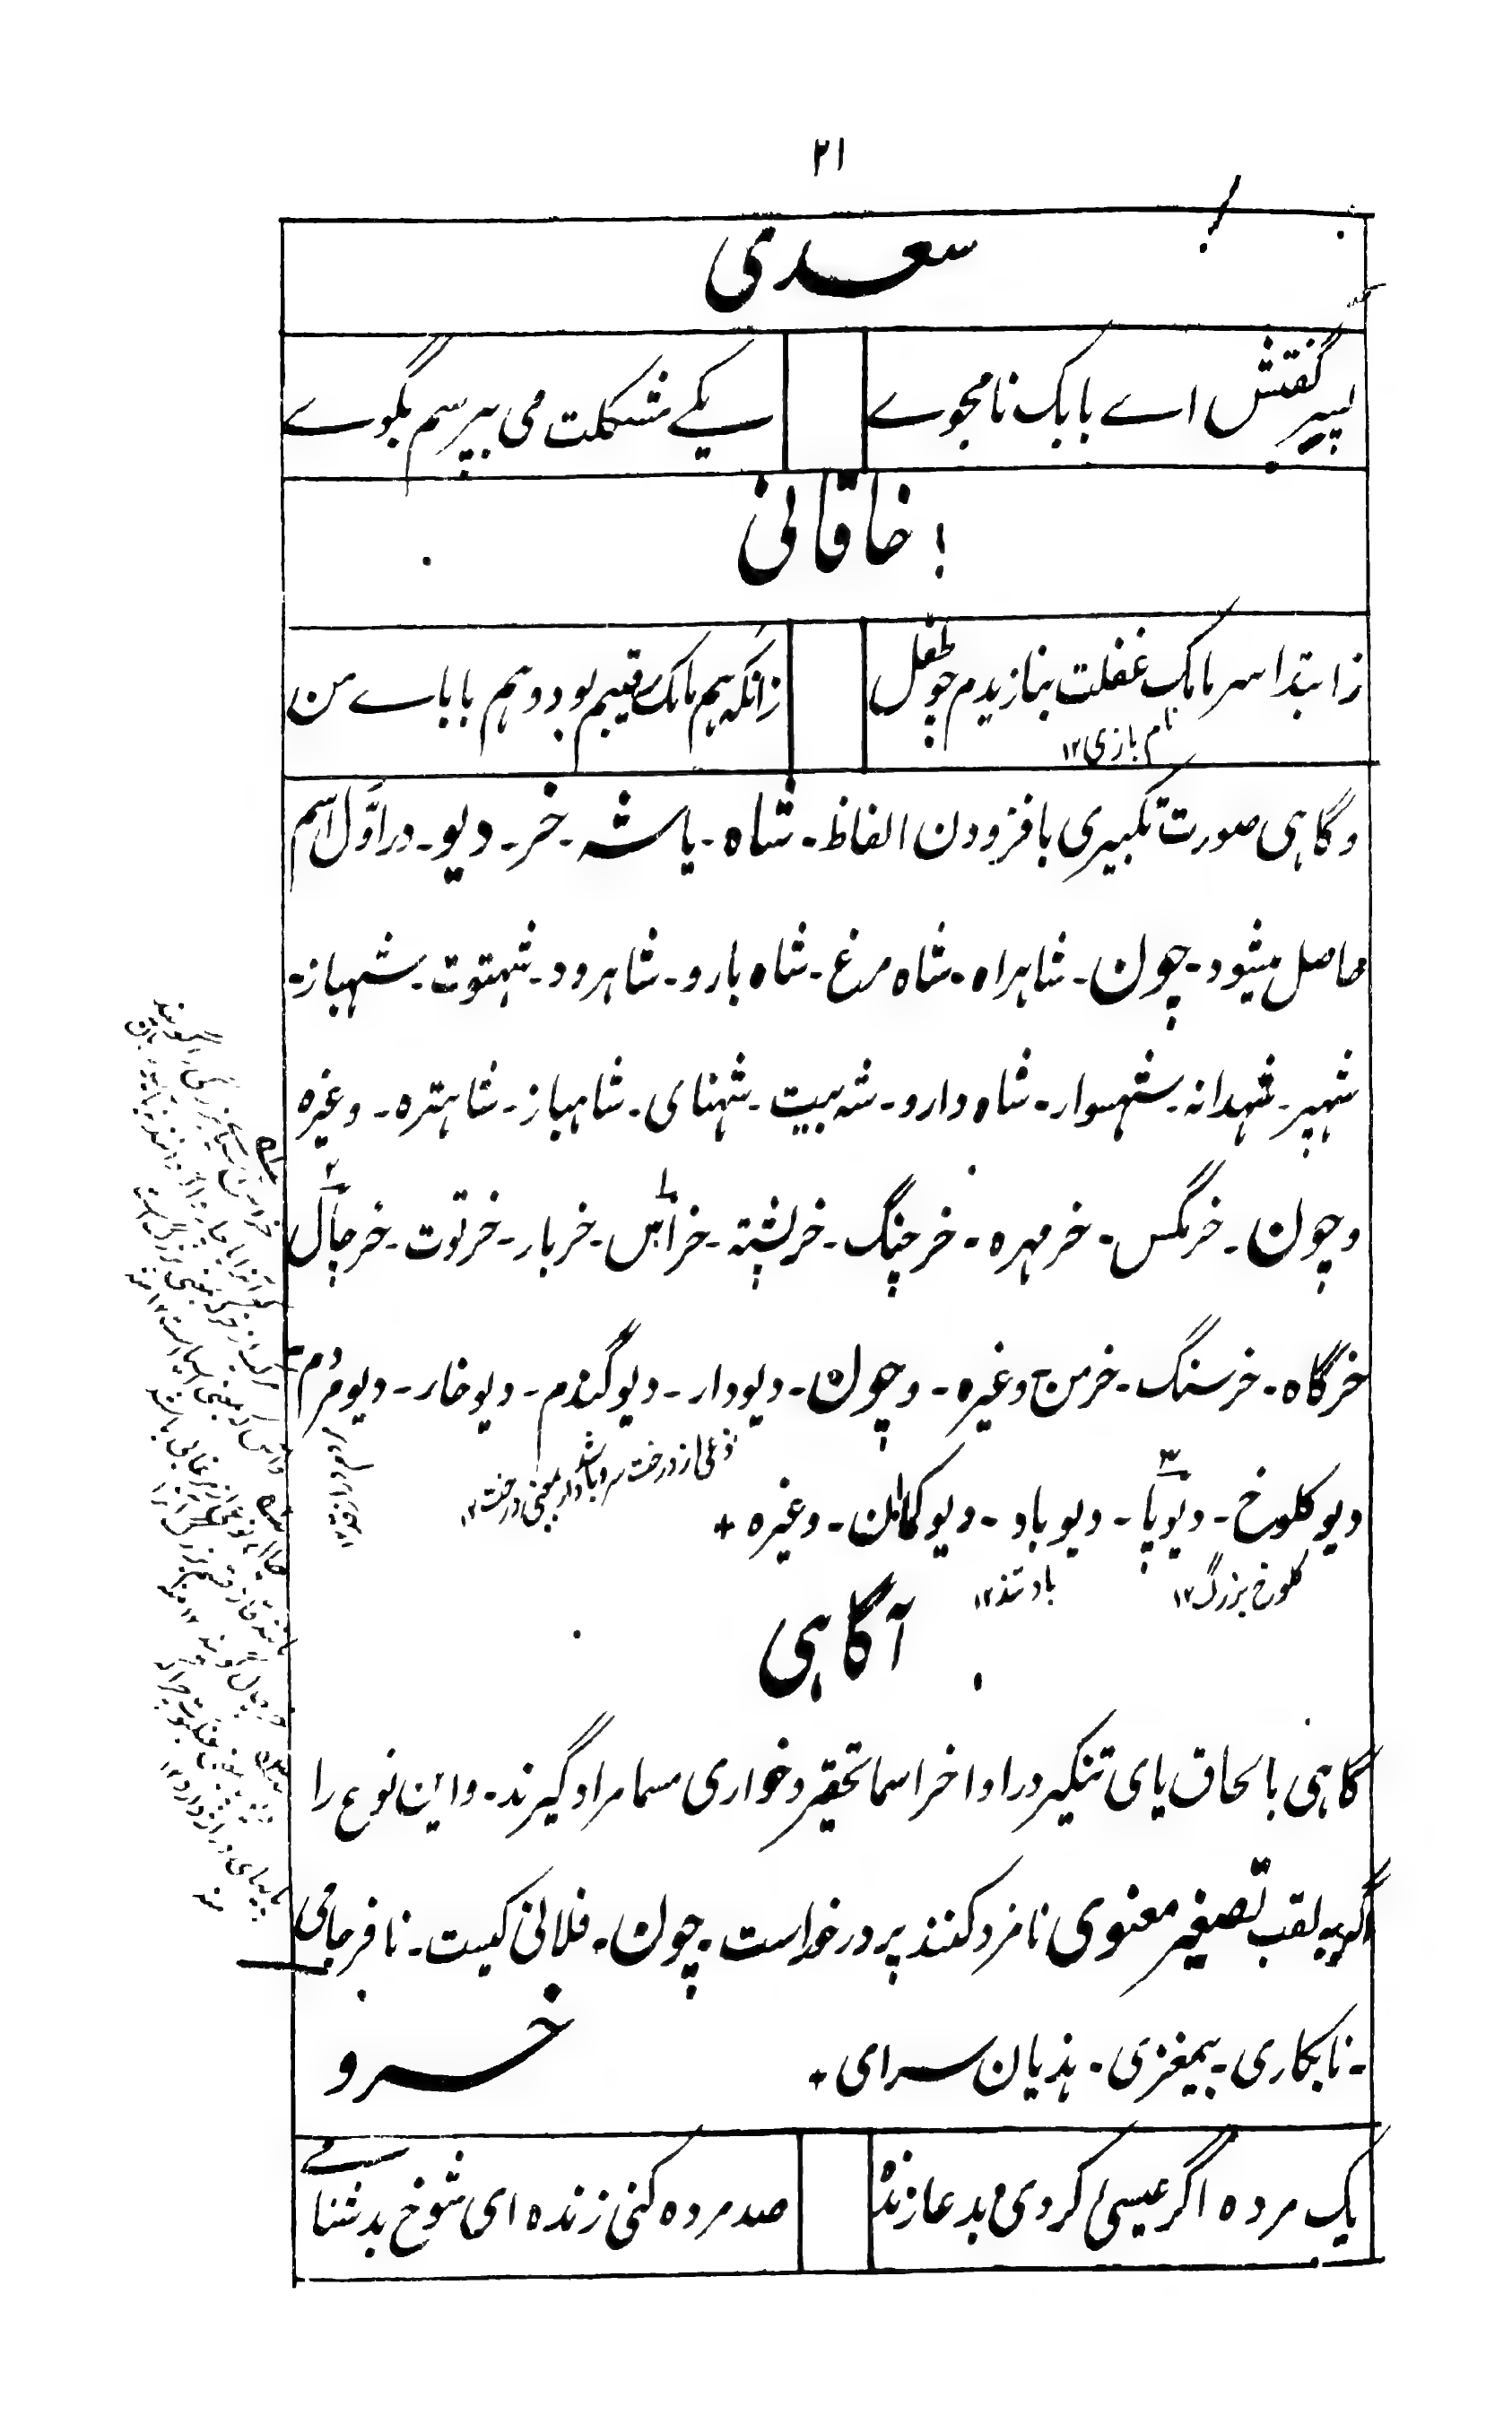 ۲۱
سعدی
پسر گفتش اے بابک نامجوے
یکے مشکلت می بپرسم بگوے
خاقانی
ز ابتدا سر مامک غفلت نبازیدم چو طفل
زانکه هم مامک رقیبم بود و هم باباے من
نام بازی ۱۲
و گاہی صورت تکبیری بافزودن الفاظ - شاه - یا شه - خر - دیو - در اوّل اسم
حاصل میشود - چون - شاہراه - شاه مرغ - شاه بارو - شاہرود - شہتوت - شہباز -
شہپر - شہدانہ - شہسوار - شاه دارو - شہ بیت - شہنای - شاہباز - شاہترہ - وغیرہ
و چون - خرمگس - خرمہرہ - خرچنگ - خرپشتہ - خراس - خربار - خرتوت - خرچال
خرگاه - خرسنگ - خرمن وغیرہ - و چون - دیودار - دیوگندم - دیوخار - دیومردم
نوعی از درخت سرو باشد دار بمعنی درخت ۱۲
دیوکلوخ - دیوپا - دیوباد - دیوکامل - وغیرہ +
کلوخ بزرگ ۱۲
باد تند ۱۲
آگاہی
گاہی بالحاق یای تنکیر در اواخر اسما تحقیر و خواری مسما مراد گیرند - و این نوع را
اگر بہ لقب تصغیر معنوی نامزد کنند پر درخور است - چون - فلانی کیست - نافرجامی
- نابکاری - بیمغزی - ہذیان سرای +
خسرو
یک مردہ اگر عیسیٰ کردی بدعا زندہ
صد مردہ کنی زندہ ای شوخ بدشنامے